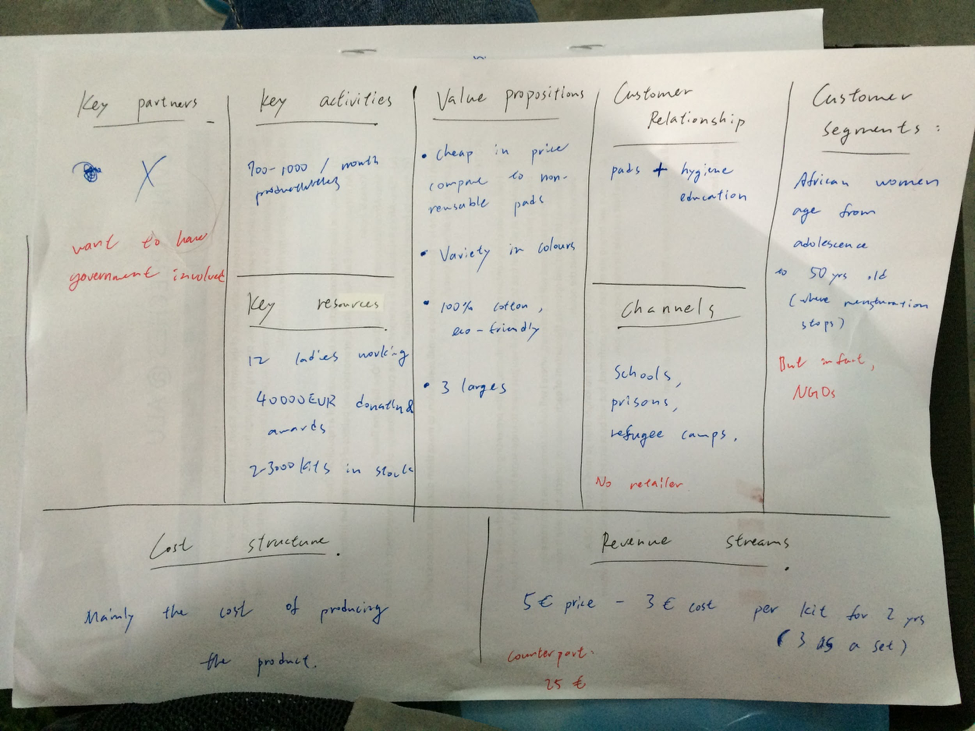 Key partners
X
want to have
government involved
Key activities
700-1000 / month
Key resources
12 ladies working
40000EUR donation &
awards
2-3000 kits in stock
Value propositions
• Cheap in price
compare to non-
reusable pads
• Variety in colours
• 100% cotton,
eco-friendly
• 3 larges
Customer
Relationship
pads + hygiene
education
Channels
Schools,
prisons,
refugee camps.
No retailer
Customer
segments:
African women
age from
adolescence
to 50 yrs old
(where menstruation
stops)
But in fact,
NGOs
Cost structure.
Mainly the cost of producing
the product.
Revenue streams.
5 € price - 3 € cost per kit for 2 yrs
(3 as a set)
Counterpart.
25 €